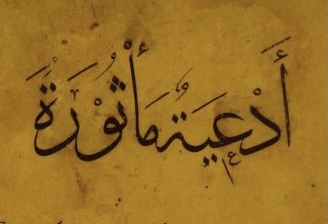 أَدْعِيَةٌ مَأْثُوْرَةٌ